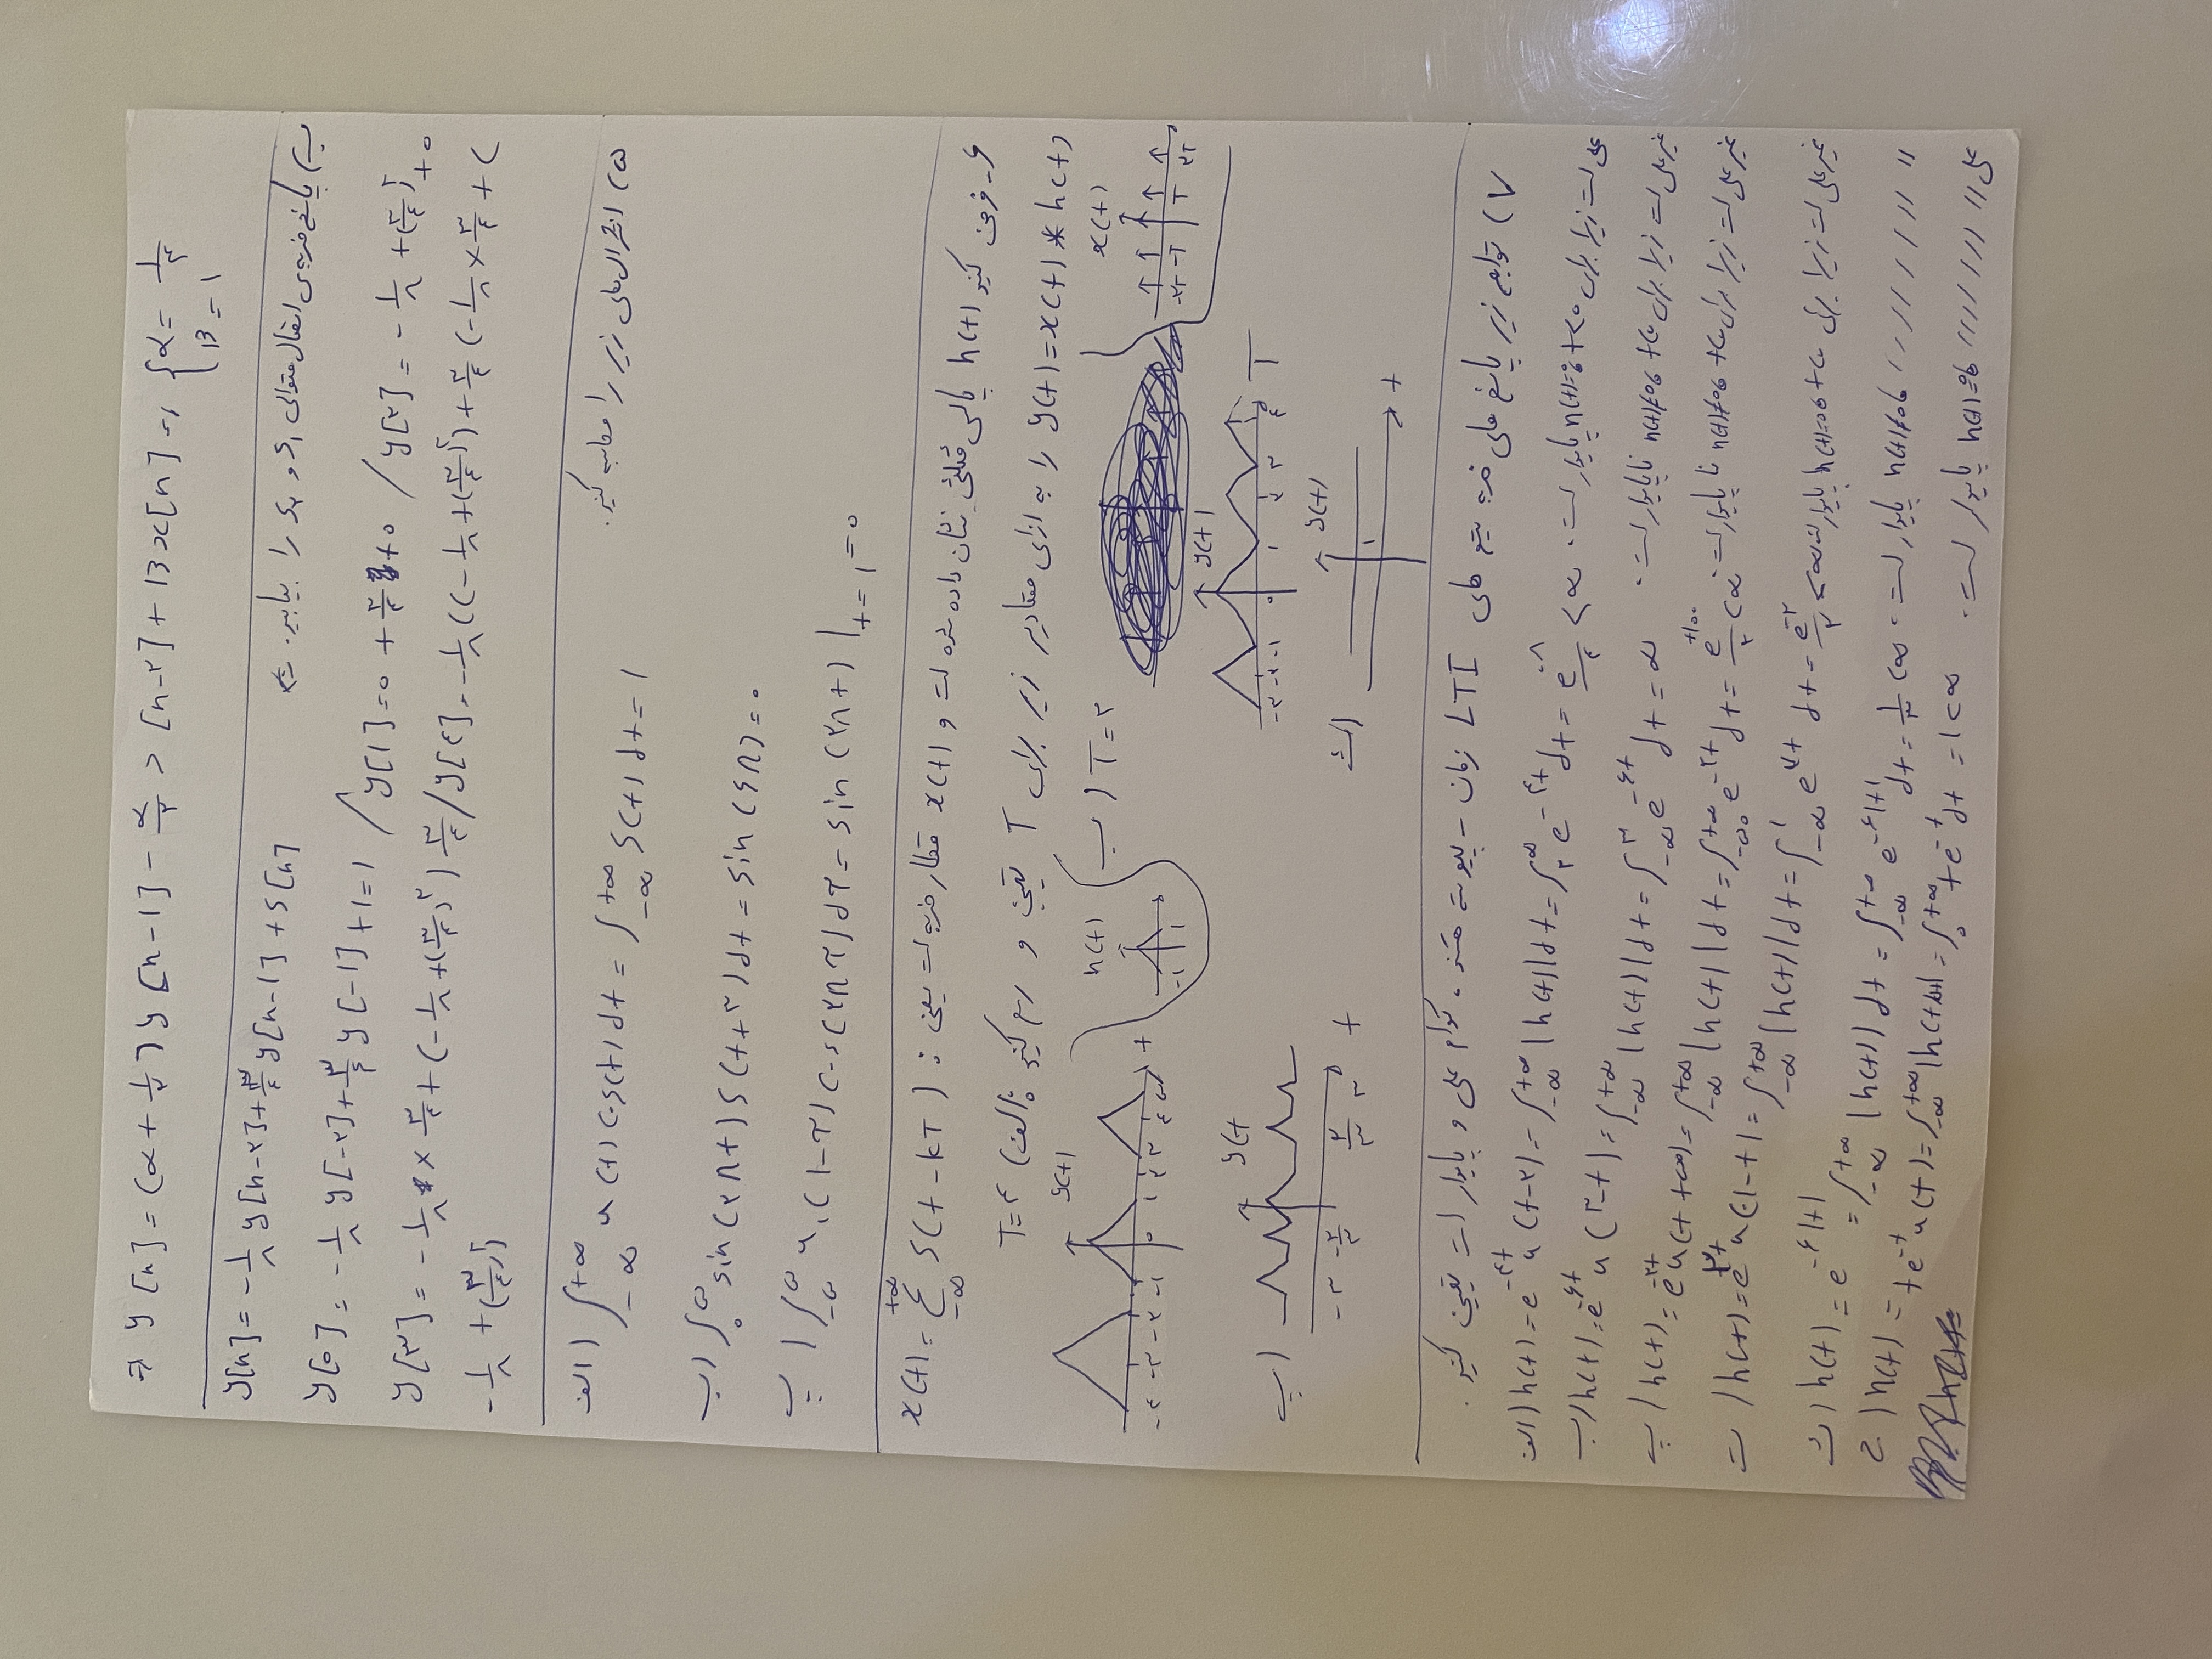 ⇒ y[n] = (α + ۱/۲) y[n-1] - α/۲ y[n-۲] + β x[n] ⇒ { α = ۱/۴
β = 1
ب) پاسخ ضربه‌ی اتصال متوالی S₁ و S₂ را بیابید. ⇒
y[n] = -۱/۸ y[n-۲] + ۳/۴ y[n-1] + δ[n]
y[0] = -۱/۸ y[-۲] + ۳/۴ y[-1] + 1 = 1 / y[1] = 0 + ۳/۴ + 0 / y[۲] = -۱/۸ + (۳/۴)² + 0
y[۳] = -۱/۸ × ۳/۴ + (-۱/۸ + (۳/۴)²) ۳/۴ / y[۴] = -۱/۸ ((-۱/۸ + (۳/۴)²) + ۳/۴ (-۱/۸ × ۳/۴ + (
-۱/۸ + (۳/۴)²)
۵) انتگرال های زیر را محاسبه کنید.
الف) ∫_{-∞}^{+∞} u(t) cos(t) dt = ∫_{-∞}^{+∞} δ(t) dt = 1
ب) ∫_۰^۵ sin(۲πt) δ(t+۳) dt = sin(۶π) = ۰
پ) ∫_{-۵}^{۵} u₁(1-τ) cos(۲πτ) dτ = sin(۲πt) |_{t=1} = 0
۶- فرض کنید h(t) پالس مثلثی نشان داده شده است و x(t) قطار ضربه است یعنی : x(t) = Σ_{-∞}^{+∞} δ(t-kT)
y(t) = x(t) * h(t) را به ازای مقادیر زیر برای T تعیین و رسم کنید : الف) T=۴
y(t)
-۴ -۳ -۲ -۱ ۰ ۱ ۲ ۳ ۴ ۵ t
h(t)
-۱ ۱
ب) T=۲
x(t)
-۲T -T T ۲T
y(t)
-۳ -۲ -۱ ۰ ۱ ۲ ۳ ۴ T
پ) y(t
-۳ -۲/۳ ۲/۳ ۳ t
ث) y(t)
۱ t
۷) توابع زیر پاسخ های ضربه سیستم های LTI زمان - پیوسته هستند، کدام علی و پایدار است تعیین کنید.
الف) h(t) = e^{-۴t} u(t-۲) = ∫_{-∞}^{+∞} |h(t)| dt = ∫_۲^∞ e^{-۴t} dt = e^{-۸}/۴ < ∞ علی است زیرا برای t<0 و h(t)=0 پایدار است.
ب) h(t) = e^{-۶t} u(۳-t) = ∫_{-∞}^{+∞} |h(t)| dt = ∫_{-∞}^{۳} e^{-۶t} dt = ∞ غیرعلی است زیرا برای t<0 و h(t)≠0 ناپایدار است.
پ) h(t) = e^{-۲t} u(t+۵۰) = ∫_{-∞}^{+∞} |h(t)| dt = ∫_{-۵۰}^{+∞} e^{-۲t} dt = e^{+۱۰۰}/۲ < ∞ غیرعلی است زیرا برای t<0 و h(t)≠0 نا پایدار است
ت) h(t) = e^{۲t} u(-1-t) = ∫_{-∞}^{+∞} |h(t)| dt = ∫_{-∞}^{1} e^{۲t} dt = e^{-۲}/۲ < ∞ غیرعلی است زیرا برای t<0 و h(t)=0 پایدار است
ث) h(t) = e^{-۶|t|} = ∫_{-∞}^{+∞} |h(t)| dt = ∫_{-∞}^{+∞} e^{-۶|t|} dt = ۱/۳ < ∞ " " " " " " h(t)≠0 پایدار است.
ج) h(t) = te^{-t} u(t) = ∫_{-∞}^{+∞} |h(t)| dt = ∫_0^{+∞} te^{-t} dt = 1 < ∞ علی " " " " " h(t)=0 پایدار است.